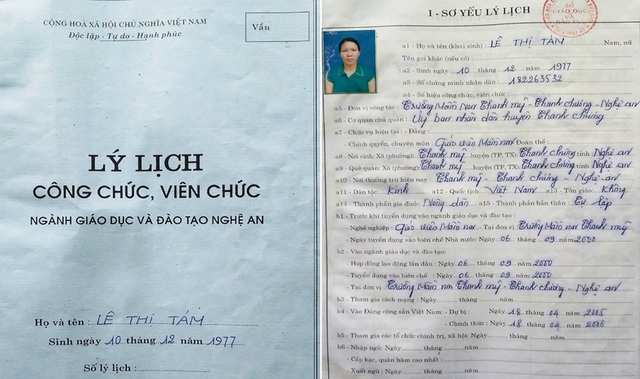 CỘNG HOÀ XÃ HỘI CHỦ NGHĨA VIỆT NAM
Độc lập - Tự do - Hạnh phúc
Vần
LÝ LỊCH
CÔNG CHỨC, VIÊN CHỨC
NGÀNH GIÁO DỤC VÀ ĐÀO TẠO NGHỆ AN
Họ và tên : LÊ THỊ TÁM
Sinh ngày 10 tháng 12 năm 1977
Số lý lịch :
I - SƠ YẾU LÝ LỊCH
SỞ
GIÁO DỤC
VÀ
a1 - Họ và tên (khai sinh) : LÊ THỊ TÁM Nam, nữ
Tên gọi khác (nếu có)
a2 - Sinh ngày 10 tháng 12 năm 1977
a3 - Số chứng minh nhân dân : 182263532
a4 - Số hiệu công chức, viên chức
a5 - Đơn vị công tác : Trường Mầm Non Thanh mỹ - Thanh chương - Nghệ an
a6 - Cơ quan chủ quản : Uỷ ban nhân dân huyện Thanh chương
a7 - Chức vụ hiện tại : - Đảng
- Chính quyền, chuyên môn : Giáo viên Mầm non Đoàn thể :
a8 - Nơi sinh: Xã (phường) Thanh mỹ huyện (TP, TX) Thanh chương tỉnh Nghệ an
a9 - Quê quán: Xã (phường) Thanh mỹ huyện (TP, TX) Thanh chương tỉnh Nghệ an
a10 - Nơi thường trú hiện nay : Thanh mỹ - Thanh chương - Nghệ an
a11 - Dân tộc : Kinh a12 - Quốc tịch : Việt Nam a13 - Tôn giáo : Không
a14 - Thành phần gia đình : Nông dân a15 - Thành phần bản thân : Tự lập
b1 - Trước khi tuyển dụng vào ngành giáo dục và đào tạo :
Nghề nghiệp : Giáo viên Mầm non Tại đơn vị Trường Mầm non Thanh mỹ
Ngày tuyển dụng vào biên chế Nhà nước : Ngày 06 tháng 09 năm 2000
b2 - Vào ngành giáo dục và đào tạo :
- Hợp đồng lao động lần đầu : Ngày 06 tháng 09 năm 2000
- Tuyển dụng vào biên chế : Ngày 06 tháng 09 năm 2000
Tại đơn vị : Trường Mầm non Thanh mỹ - Thanh chương - Nghệ an
b3 - Tham gia cách mạng : Ngày tháng năm
b4 - Vào Đảng cộng sản Việt Nam : - Dự bị : Ngày 18 tháng 04 năm 2005
- Chính thức : Ngày 18 tháng 04 năm 2006
b5 - Tham gia các tổ chức chính trị, xã hội : Ngày tháng năm
b6 - Nhập ngũ : Ngày tháng năm
- Cấp bậc, quân hàm cao nhất :
Xuất ngũ : Ngày tháng năm